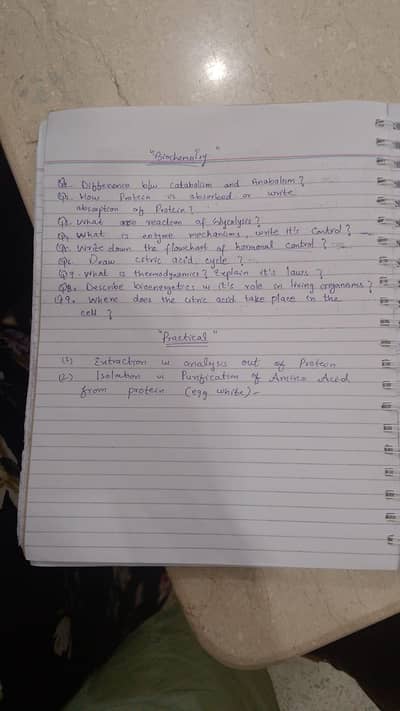 "Biochemistry"
Q1. Difference b/w Catabolism and Anabolism?
Q2. How Protein is absorbed or write
absorption of Protein?
Q3. What are reaction of Glycolysis?
Q4. What is enzyme mechanims, write it's Control?
Q5. Write down the flowchart of hormonal control?
Q6. Draw citric acid, cycle?
Q7. What is thermodynamics? Explain it's laws?
Q8. Describe bioenergetics it's role in living organisms?
Q9. Where does the citric acid take place in the
cell?
"Practical"
(1) Extraction analysis out of Protein
(2) Isolation Purification of Amino Acid
from protein (egg white)-